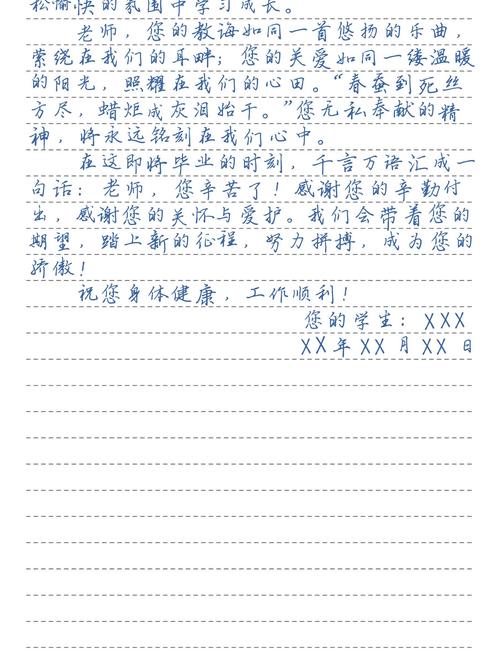 松愉快的氛围中学习成长。
老师，您的教诲如同一首悠扬的乐曲，
萦绕在我们的耳畔；您的关爱如同一缕温暖
的阳光，照耀在我们的心田。“春蚕到死丝
方尽，蜡炬成灰泪始干。”您无私奉献的精
神，将永远铭刻在我们心中。
在这即将毕业的时刻，千言万语汇成一
句话：老师，您辛苦了！感谢您的辛勤付
出，感谢您的关怀与爱护。我们会带着您的
期望，踏上新的征程，努力拼搏，成为您的
骄傲！
祝您身体健康，工作顺利！
您的学生：XXX
XX年XX月XX日